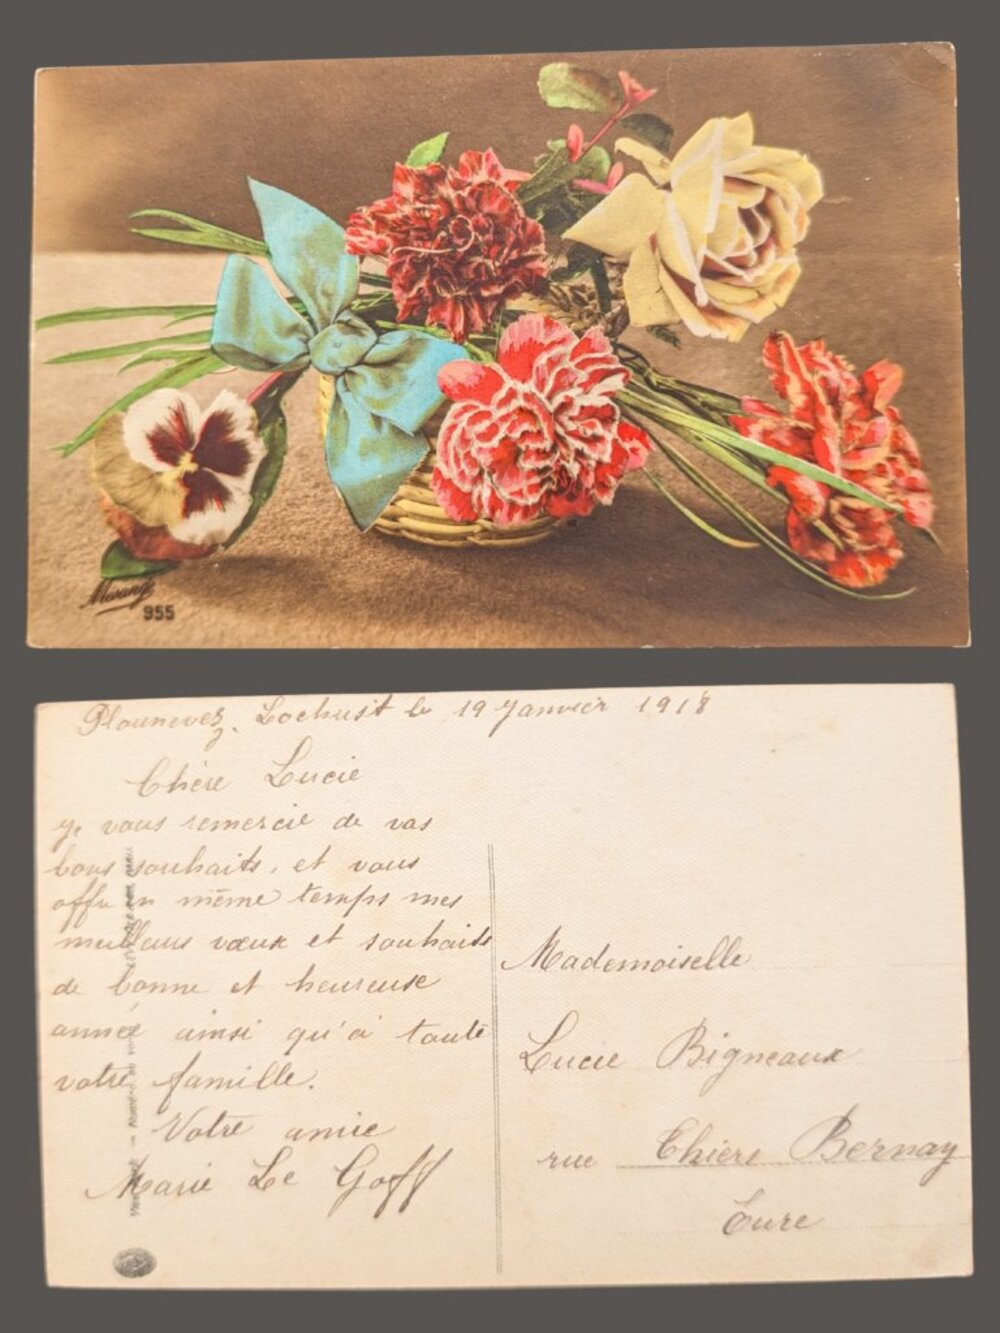 955
Plounevez Lochrist le 19 Janvier 1918
Chère Lucie
Je vous remercie de vos
bons souhaits, et vous
offre en même temps mes
meilleurs vœux et souhaits
de bonne et heureuse
année ainsi qu'à toute
votre famille.
Votre amie
Marie Le Goff
Mademoiselle
Lucie Bigneaux
rue Thiers Bernay
Eure